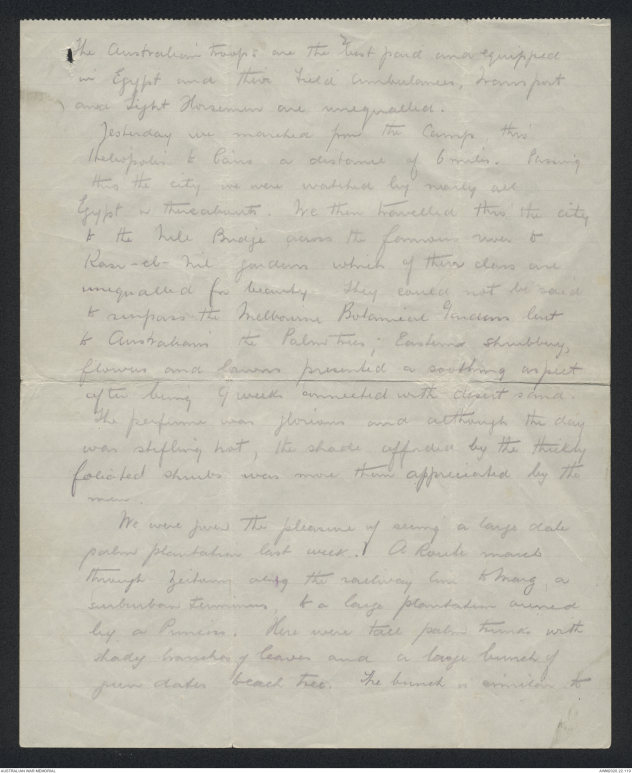 The Australian troops are the best paid and equipped
in Egypt and their Field Ambulances, transport
and Light Horsemen are unequalled.
Yesterday we marched from the Camp, thro
Heliopolis to Cairo a distance of 6 miles. Passing
thro the city we were watched by nearly all
Egypt & thereabouts. We then travelled thro' the city
to the Nile Bridge across the famous river to
Kasr-el-Nil gardens which of their class are
unequalled for beauty. They could not be said
to surpass the Melbourne Botanical Gardens but
to Australians the Palm trees, Eastern shrubbery,
flowers and lawns presented a soothing aspect
after being 9 weeks connected with desert sand.
The perfume was glorious and although the day
was stifling hot, the shade afforded by the thickly
foliated shrubs was more than appreciated by the
men.
We were given the pleasure of seeing a large date
palm plantation last week. A Route march
through Zeitoun along the railway line to Marg, a
suburban terminus, to a large plantation owned
by a Princess. Here were tall palm trunks with
shady branches of leaves and a large bunch of
green dates beach tree. The bunch is similar to
AUSTRALIAN WAR MEMORIAL